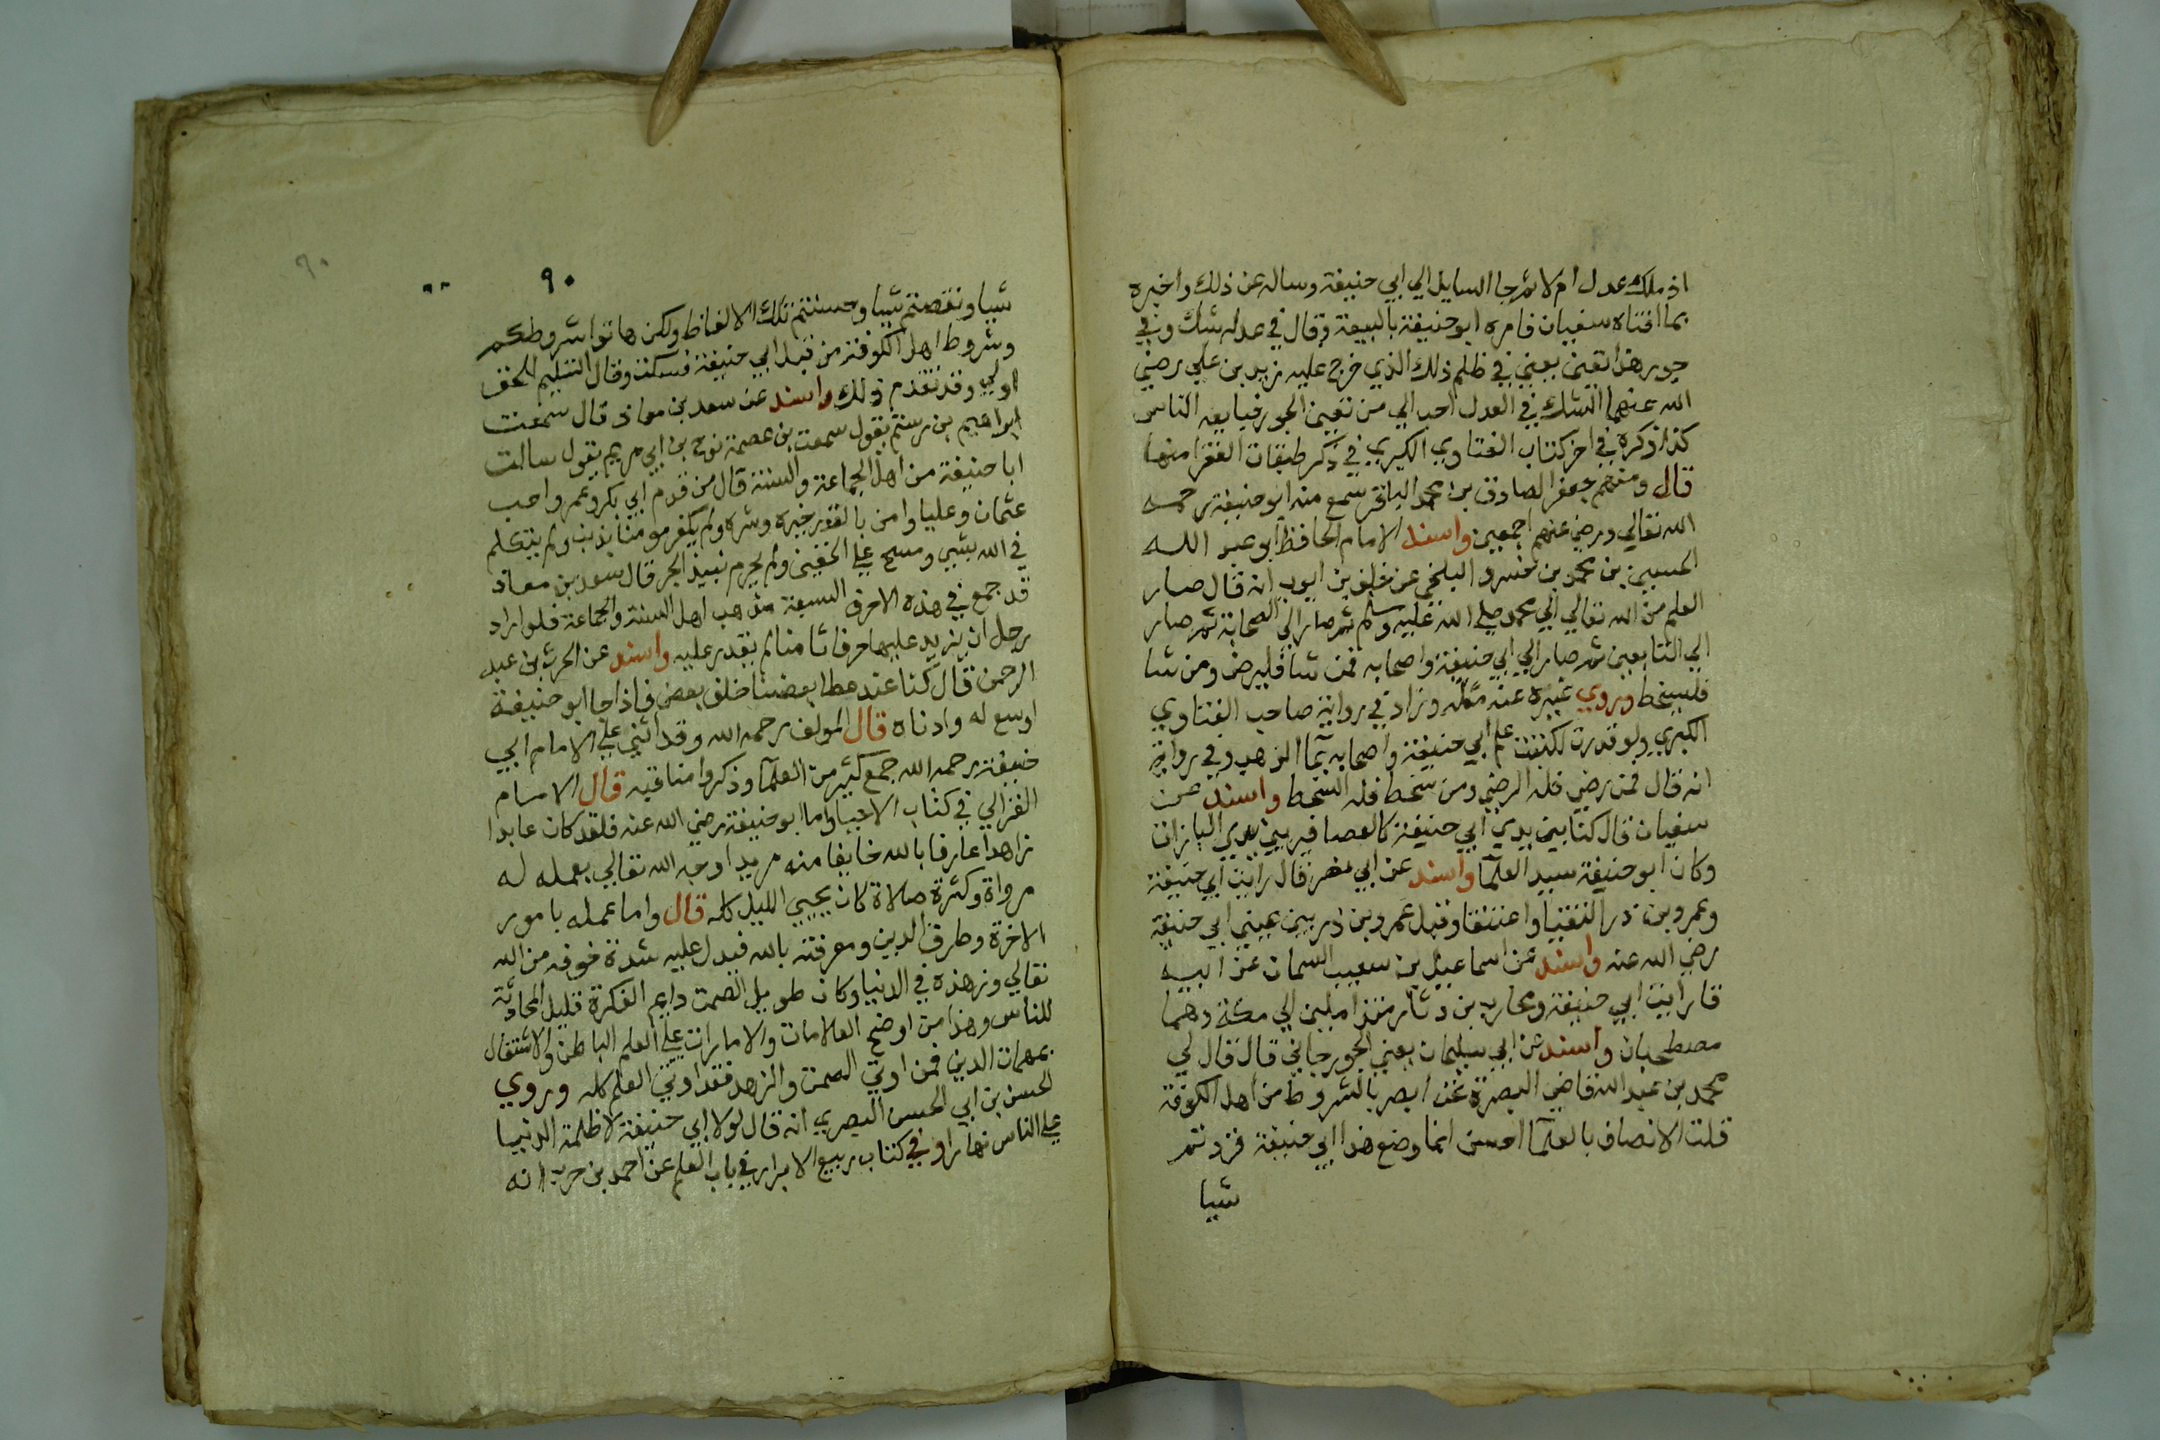 اذ ملك عدل ام لا ثم جا السايل الي ابي حنيفة وساله عن ذلك واخبره
بما افتاه سفيان فامره ابو حنيفة بالبيعة وقال في عدله شك وفي
جور هذا يقين يعني في ظلم ذلك الذي خرج عليه زيد بن علي رضي
الله عنهما الشك في العدل احب الي من يقين الجور فبايعه الناس
كذا ذكره في اخر كتاب الفتاوي الكبري في ذكر طبقات الفقها منها
قال ومنهم جعفر الصادق بن محمد الباقر سمع منه ابو حنيفة رحمه
الله تعالي ورضي عنهم اجمعين واسند الامام الحافظ ابو عبد الله
الحسين بن محمد بن خسرو البلخي عن خلف بن ايوب انه قال صار
العلم من الله تعالي الي محمد صلي الله عليه وسلم ثم صار الي الصحابة ثم صار
الي التابعين ثم صار الي ابي حنيفة واصحابه فمن شا فليرض ومن شا
فليسخط وروي غيره عنه مثله وزاد في رواية صاحب الفتاوي
الكبري ولو قدرت لكتبت علم ابي حنيفة واصحابه بما الذهب وفي رواية
انه قال فمن رضي فله الرضي ومن سخط فله السخط واسند عن
سفيان قال كنا بين يدي ابي حنيفة كالعصافير بين يدي البازات
وكان ابو حنيفة سيد العلما واسند عن ابي قال رايت ابي حنيفة
وعمرو بن ذر التقيا واعتنقا وقبل عمرو بن ذر بين عيني ابي حنيفة
رضي الله عنه واسند عن اسماعيل بن شعيب السمان عن ابيه
قا رايت ابي حنيفة ومحارب بن دثار الي مكة وهما
مصطحبان واسند عن ابي سليمان يعني الجورجاني قال قال لي
محمد بن عبد الله قاضي البصرة نحن ابصر بالشروط من اهل الكوفة
قلت الانصاف بالعلما احسن انما وضع هذا ابي حنيفة فزدتم
شيا
٩٠
٩٠
شيا ونقصتم شيا وحسنتم تلك الالفاظ ولكن هاتوا شروطكم
وشروط اهل الكوفة من قبل ابي حنيفة فسكت وقال التسليم للحق
اولي وقد تقدم ذلك واسند عن سعد بن معاذ قال سمعت
ابراهيم بن رستم يقول سمعت بن عصمة نوح بن ابي مريم يقول سالت
ابا حنيفة من اهل الجماعة والسنة قال من قدم ابي بكر وعمر واحب
عثمان وعليا وامن بالقدر خيره وشره ولم يكفر مومنا بذنب ولم يتكلم
في الله بشي ومسح علي الخفين ولم يحرم نبيذ الجر قال سعد بن معاذ
قد جمع في هذه الاحرف السبعة مذهب اهل السنة والجماعة فلو اراد
رجل ان يزيد عليها حرفا ثامنا لم يقدر عليه واسند عن الحرث بن عبد
الرحمن قال كنا عند عطا بعضنا خلف بعض فاذا جا ابو حنيفة
اوسع له وادناه قال المولف رحمه الله وقد اثني علي الامام ابي
حنيفة رحمه الله جمع كثير من العلما وذكروا مناقبه قال الامام
الغزالي في كتاب الاحيا واما ابو حنيفة رضي الله عنه فلقد كان عابدا
زاهدا عارفا بالله خايفا منه مريدا وجه الله تعالي بعمله له
مرواة وكثرة صلاة كان يحيي الليل كله قال واما عمله بامور
الاخرة وطرق الدين ومعرفته بالله فيدل عليه شدة خوفه من الله
تعالي وزهده في الدنيا وكان طويل الصمت دايم الفكرة قليل المحادثة
للناس وهذا من اوضح العلامات والامارات علي العلم الباطن والاشتغال
بمهمات الدين فمن اوتي الصمت والزهد فقد اوتي العلم كله وروي
لحسن بن ابي الحسن البصري انه قال لولا ابي حنيفة لاظلمة الدنيا
علي الناس نهارا وفي كتاب ربيع الابرار في باب العلم عن احمد بن حرب انه